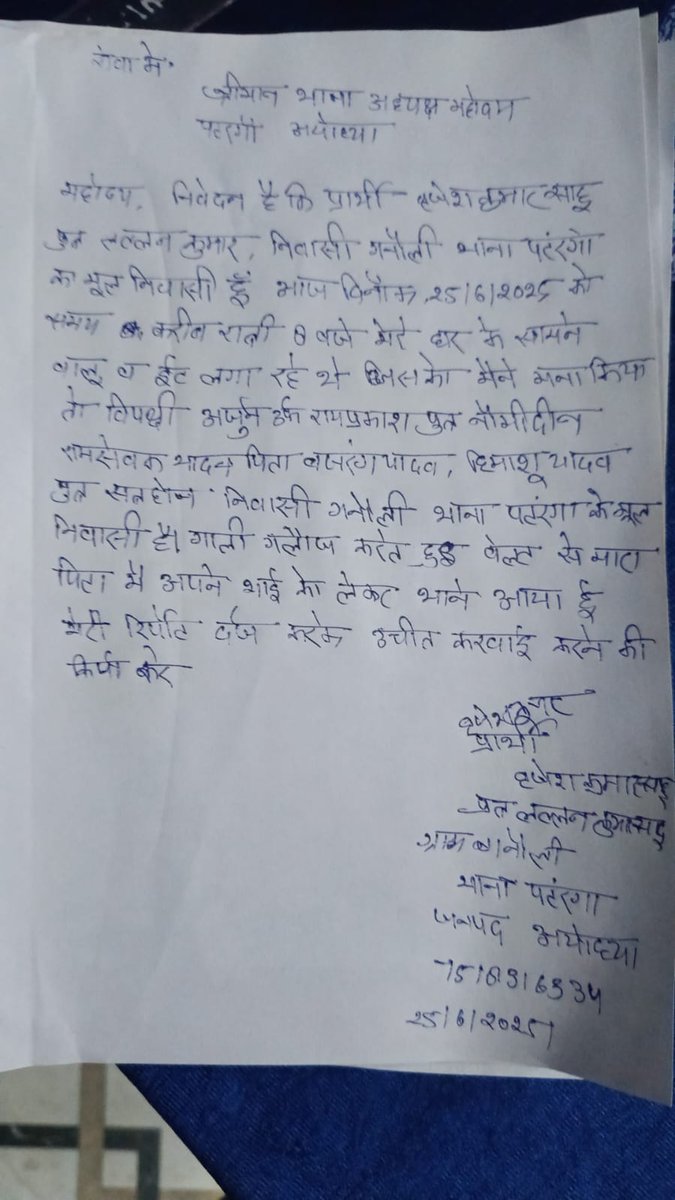 सेवा मे.
श्रीमान थाना अध्यक्ष महोदय
पटरंगा अयोध्या
महोदय, निवेदन है कि प्रार्थी बृजेश कुमार साहू
पुत्र लल्लन कुमार, निवासी गनौली थाना पटरंगा
का मूल निवासी हूँ आज दिनाँक 25/6/2025 को
समय करीब रात्री 8 बजे मेरे घर के सामने
बालू व ईट लगा रहे थे जिसको मैने मना किया
तो विपक्षी अर्जुन उर्फ रामप्रकाश पुत्र नौमीदीन
रामसेवक यादव पिता बजरंग यादव, हिमाशू यादव
पुत्र निवासी गनौली थाना पटरंगा के मूल
निवासी है। गाली गलौज करते हुए बेल्ट से मारा
पिटा मै अपने भाई को लेकर थाने आया हूँ
मेरी रिर्पोट दर्ज करके उचीत करवाई करने की
किर्पा करे
बृजेश कुमार
प्रार्थी
बृजेश कुमार साहू
पुत्र लल्लन कुमार साहू
ग्राम गनौली
थाना पटरंगा
जनपद अयोध्या
25/6/2025